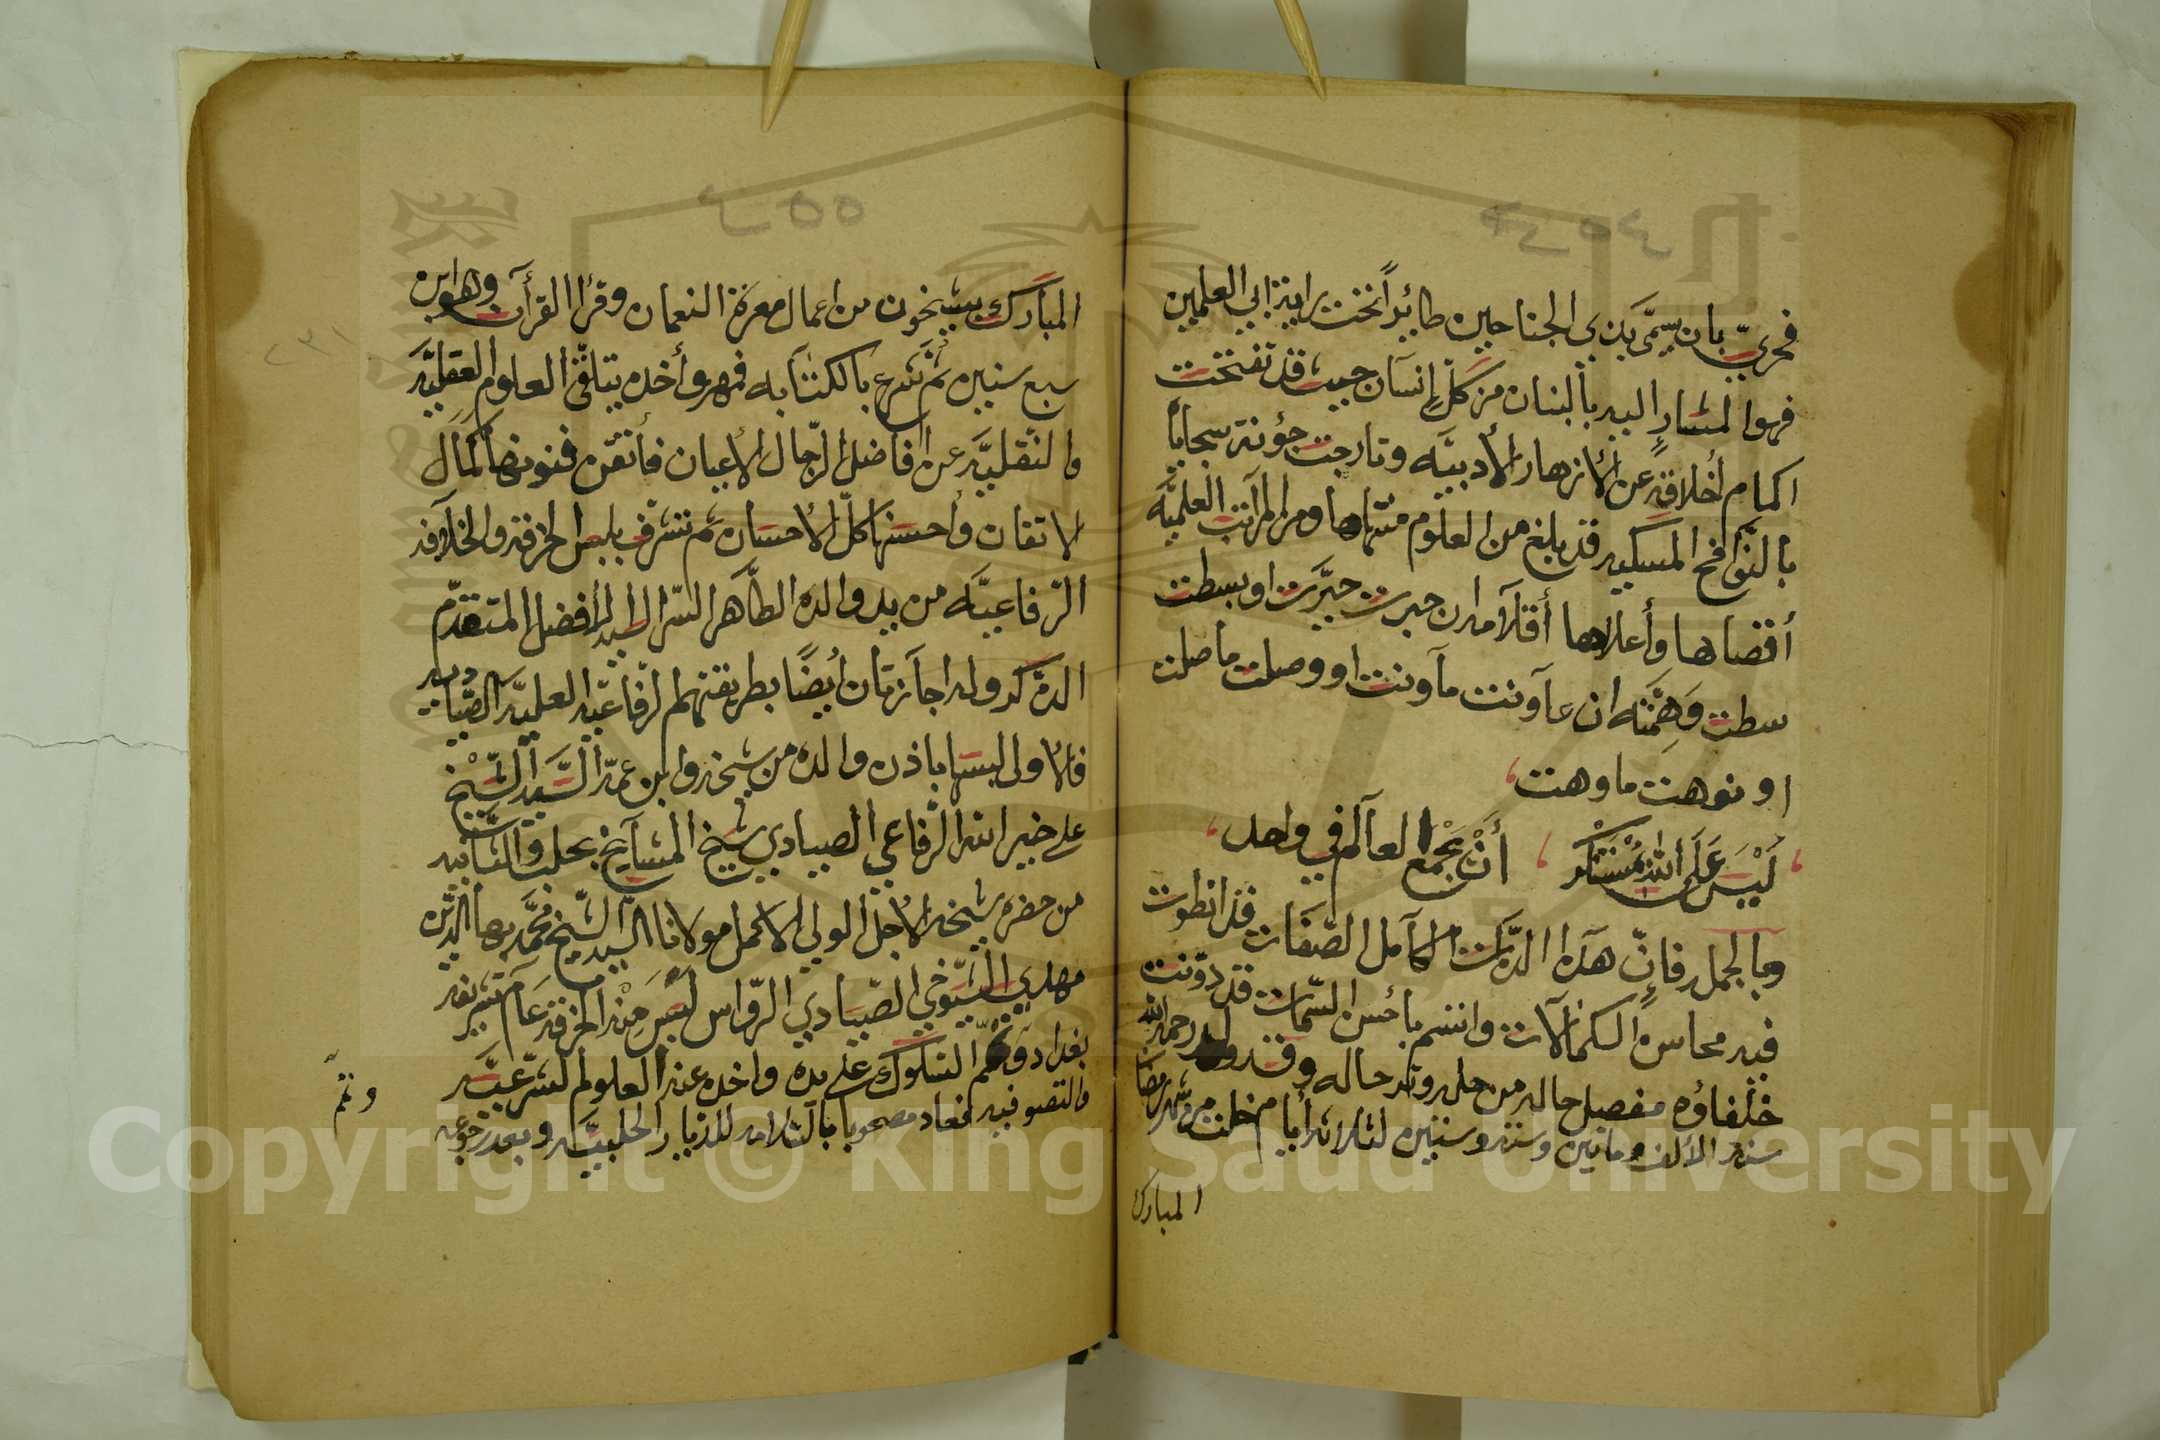 فحريّ بان يسمّى بذي الجناحين طائراً تحت راية ابي العلمين
فهو المشار اليه بالبنان من كلّ إنسان حيث قد تفتحت
اكمام أخلاقه عن الأزهار الأدبيّه وتارجت جؤنة سجاياه
بالنوافح المسكيه قد بلغ من العلوم منتهاها ومن المراتب العلميّه
أقصاها وأعلاها أقلامه ان حبرت حيّرت او بسطت
سطت وَهِمّته ان عاونت مآونت او وصلت ما صلت
او نوهت ما وهت
لَيْسَ عَلَى اللهِ بمُسْتَنْكر أنْ يَجْمَعَ العالم في واحد
وبالجمله فانّ هذا الذات الكامل الصّفات قد انطوت
فيه محاسن الكمالات واتسم بأحسن السّمات قد دوّنت
خلفاؤه مفصل حاله من حله وترحاله وقد ولد رحمه الله
سنة الألف ومائتين وستة وستين لثلاثة أيام خلت من شهر رمضان
المبارك
المبارك بشيخون من اعمال معرة النعمان وقرا القرآن وهو ابن
سبع سنين ثم شرع بالكتابه فمهر وأخذ يتلقّى العلوم العقليّه
والنّقليّه عن افاضل الرّجال الأعيان فأتقن فنونها كمال
الاتقان وأحسنها كلّ الأحسان ثم تشرف بلبس الخرقة والخلافه
الرّفاعيّه من يد والده الطّاهر السّر الطيب الأفضل المتقدّم
الذكر وله اجازتان أيضًا بطريقتهم الرفاعيّه العليّه الصّياديه
فالاولى لبسها باذن والده من شيخه وابن عمه السّيد الشّيخ
علي خير الله الرّفاعي الصيادي شيخ المشايخ بحلب والثّانيه
من حضرة شيخه الأجل الولي الاكمل مولانا السّيد الشّيخ محمّد بهاء الدّين
مهدي الشيوخي الصّيادي الروّاس لبس منه الخرقه عام تشريفه
بغداد وتمّم السّلوك على يده واخذ عنه العلوم الشّرعيّه
والتصوفيه فعاد مصحوبا بالسّلامه للديار الحلبيّه وبعد رجوعه
وتمّ